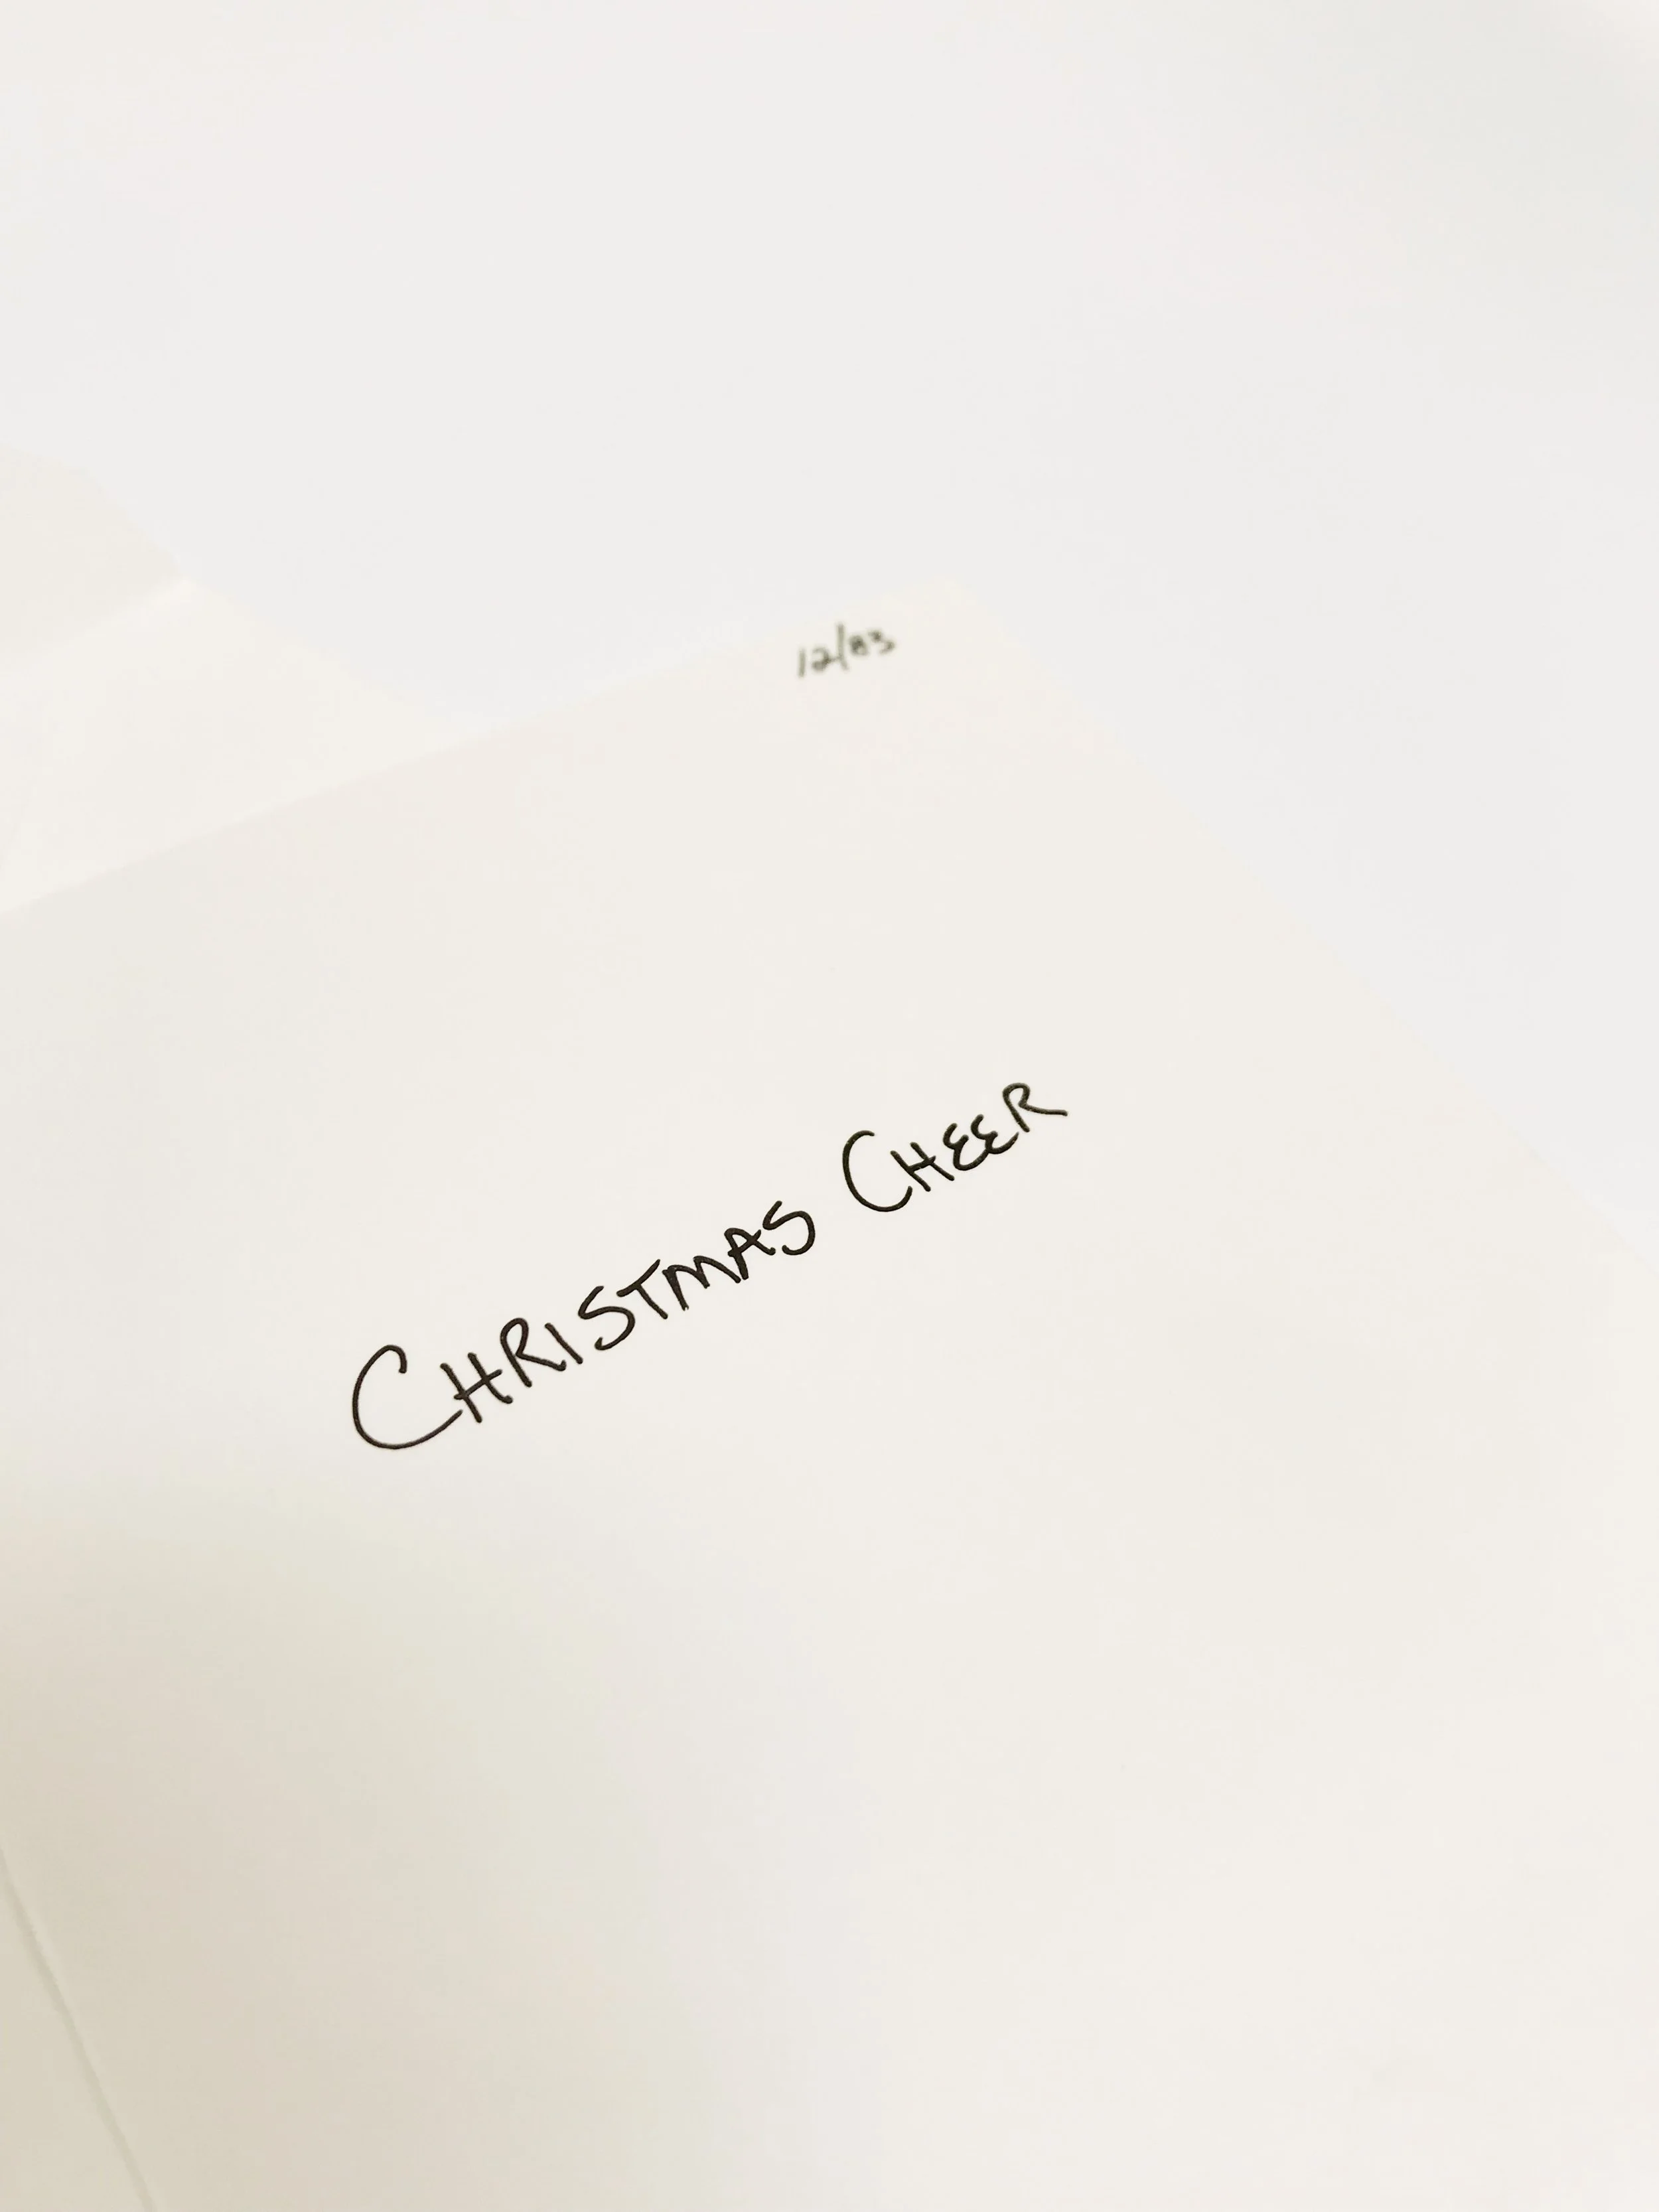 12/83
CHRISTMAS CHEER